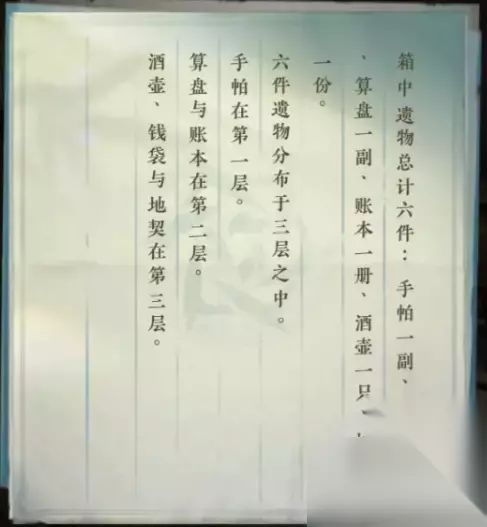 箱中遗物总计六件：手帕一副、
、算盘一副、账本一册、酒壶一只、
一份。
六件遗物分布于三层之中。
手帕在第一层。
算盘与账本在第二层。
酒壶、钱袋与地契在第三层。